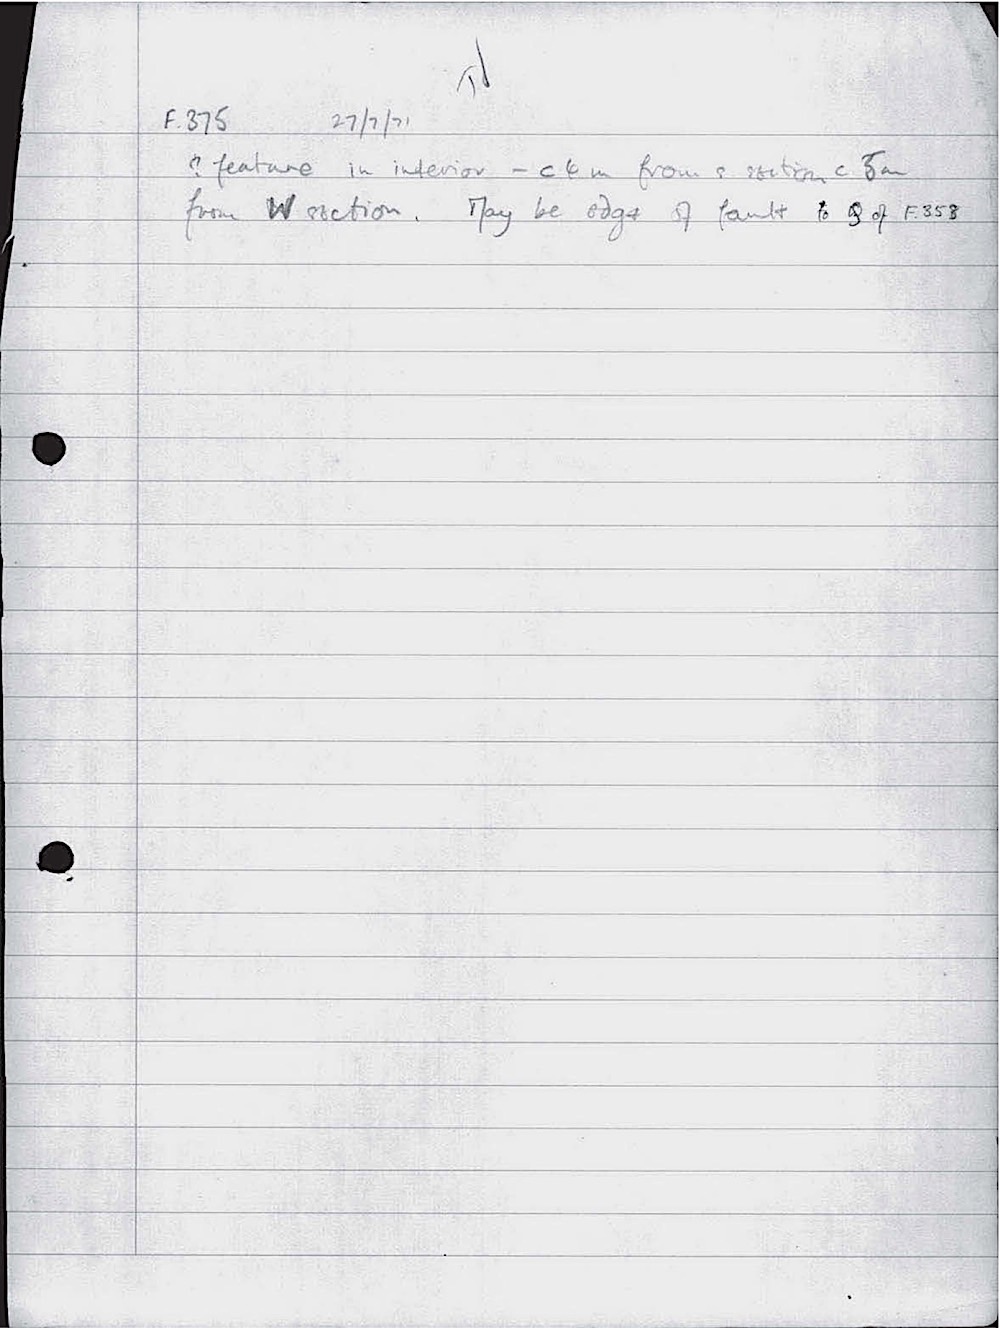 F.375 27/7/71
? feature in interior - c 4 m from s section c 5m
from W section. May be edge of fault to S of F.358